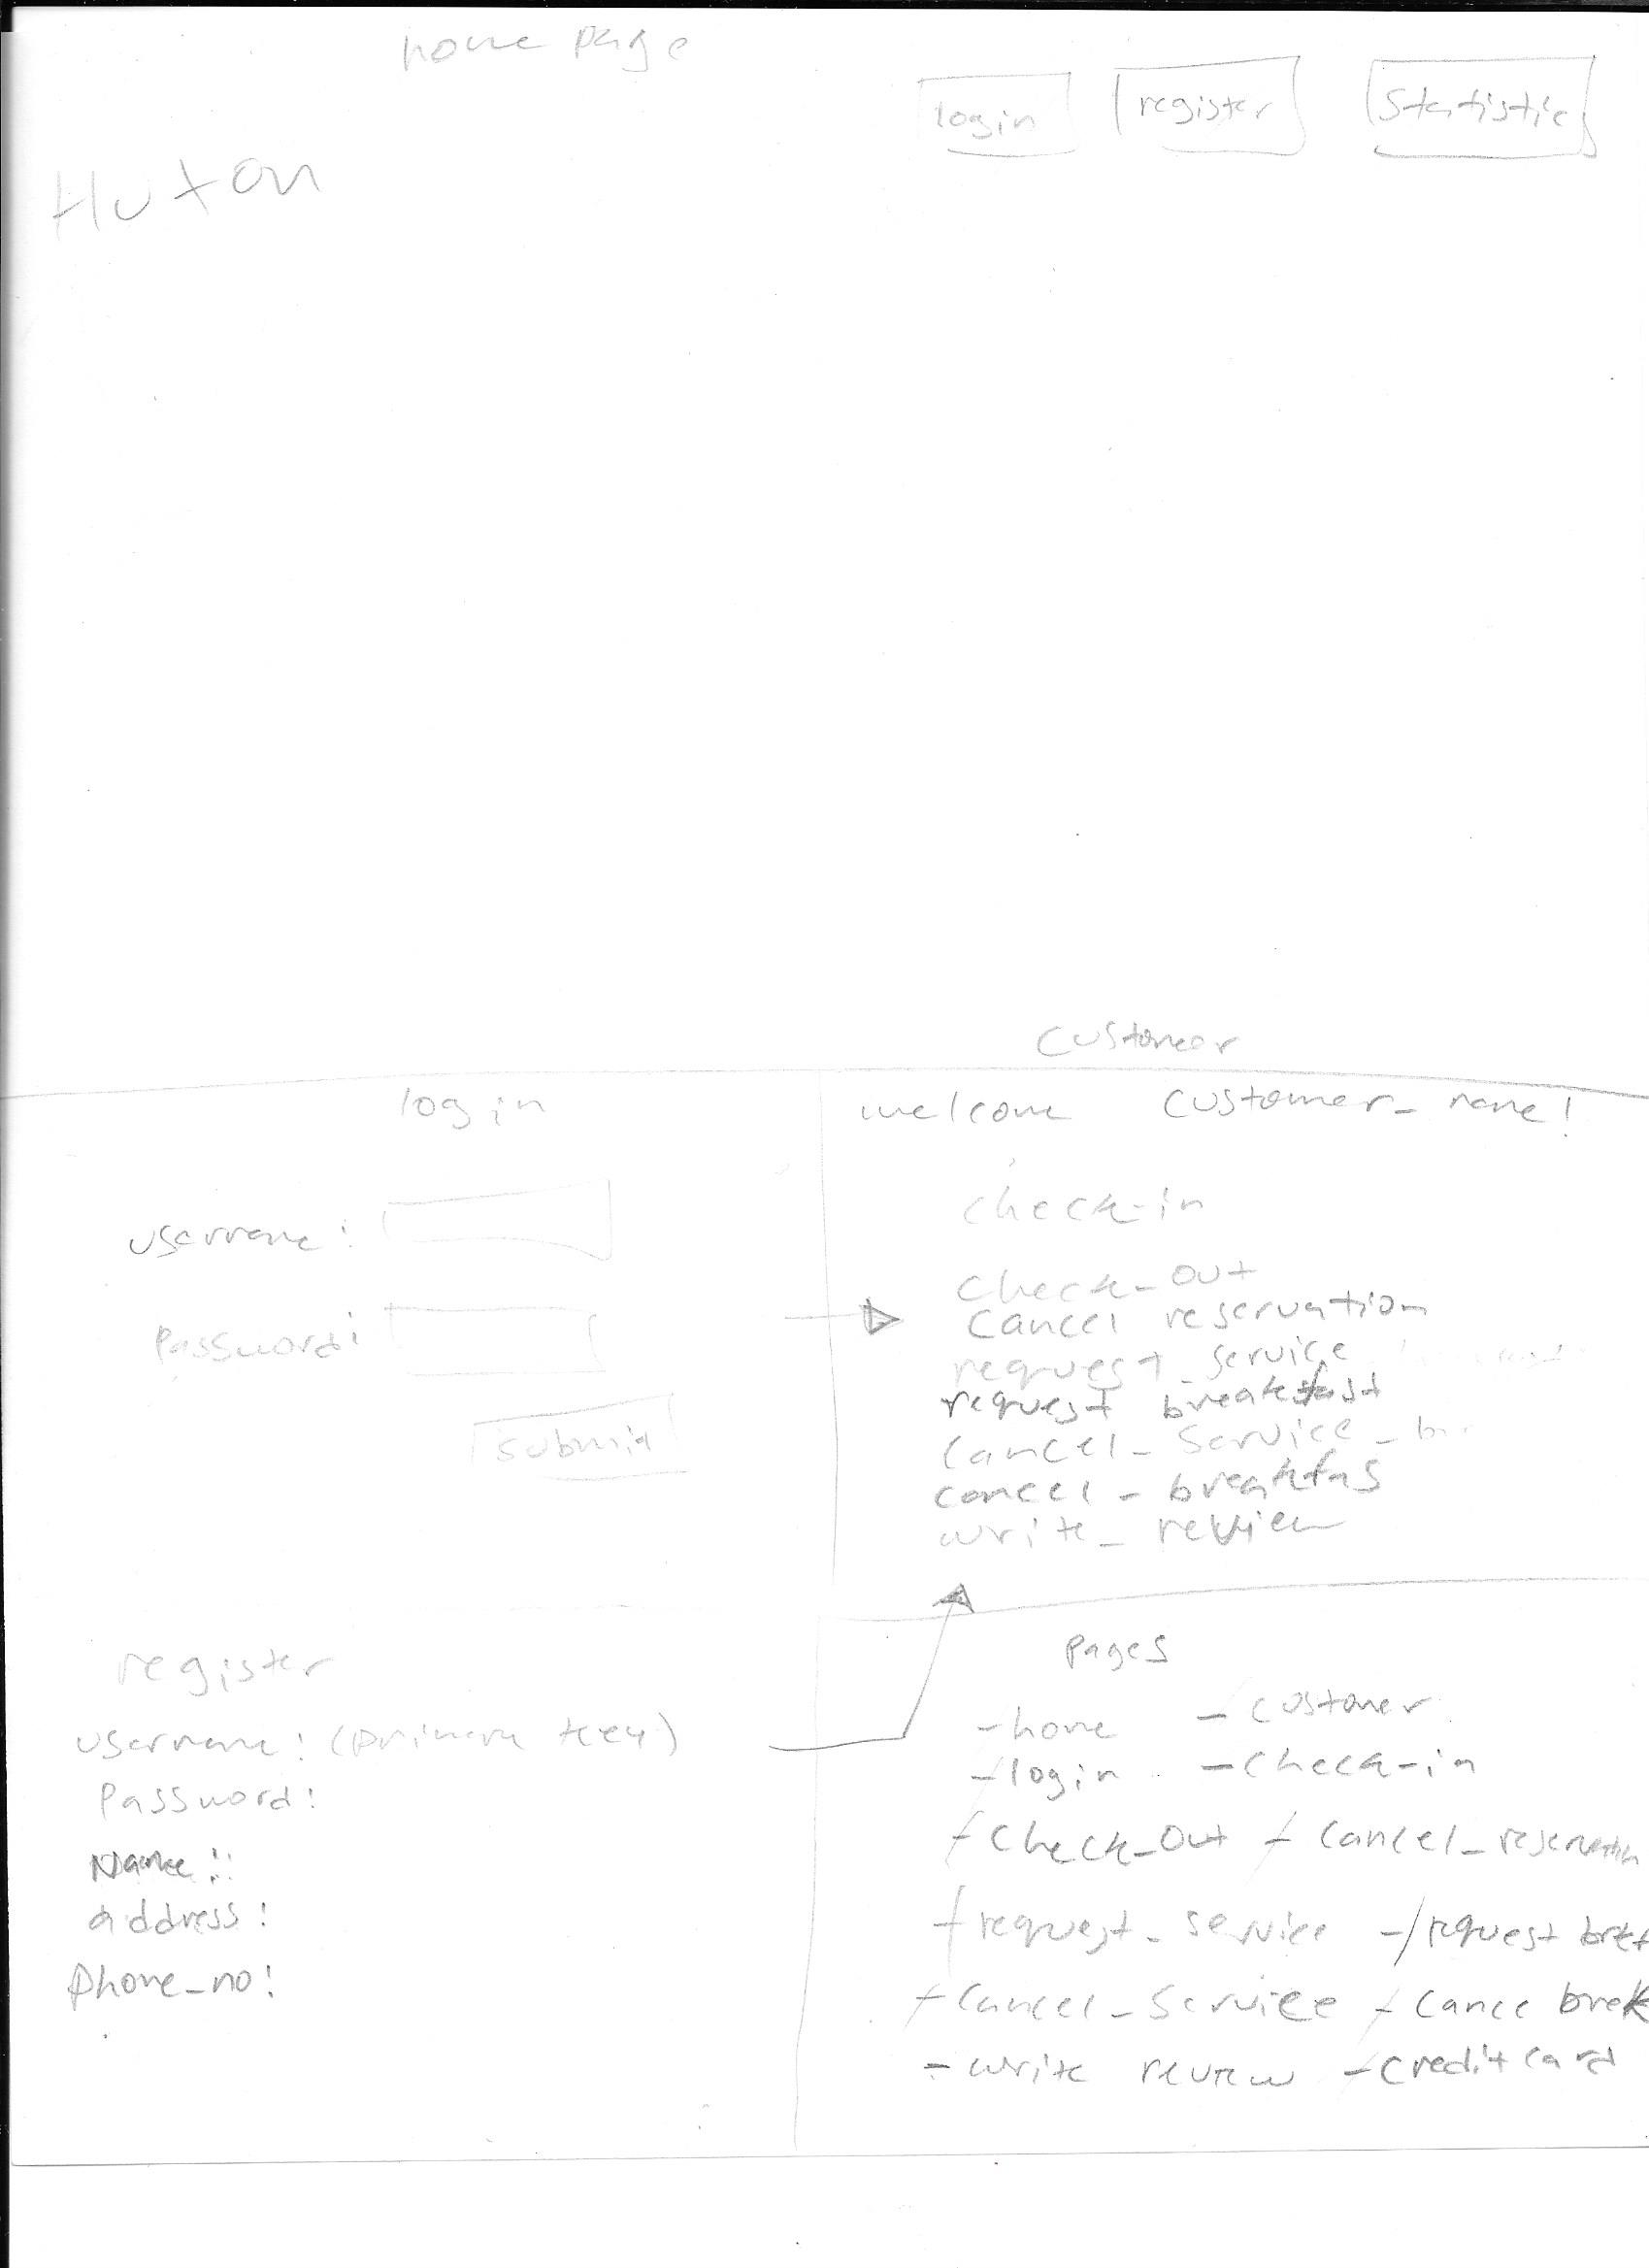 home page
login register Statistic
Huton
Customer
login
username:
Password:
submit
welcome customer_name!
check-in
check_out
cancel reservation
request_service
request breakfast
cancel_service_
cancel_breakfas
write_review
register
username: (primary key)
Password:
Name:
address:
phone_no:
pages
-home -customer
-login -check-in
-check_out -cancel_reservation
-request_service -request
-cancel_service -cance brek
-write review -credit card